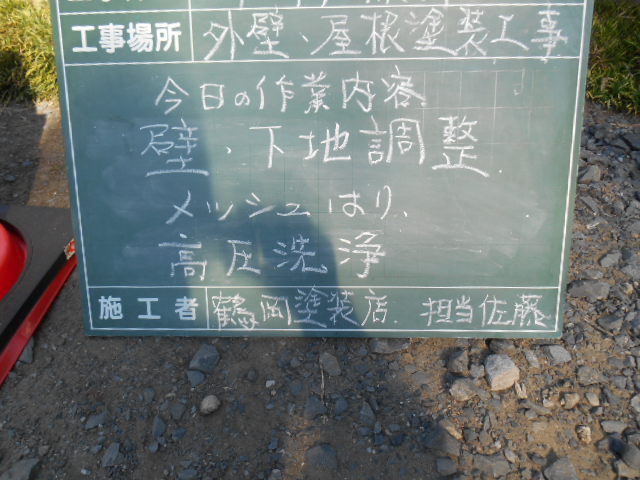 工事場所 外壁、屋根塗装工事
今日の作業内容
壁、下地調整
メッシュはり、
高圧洗浄
施工者 鶴岡塗装店. 担当佐藤